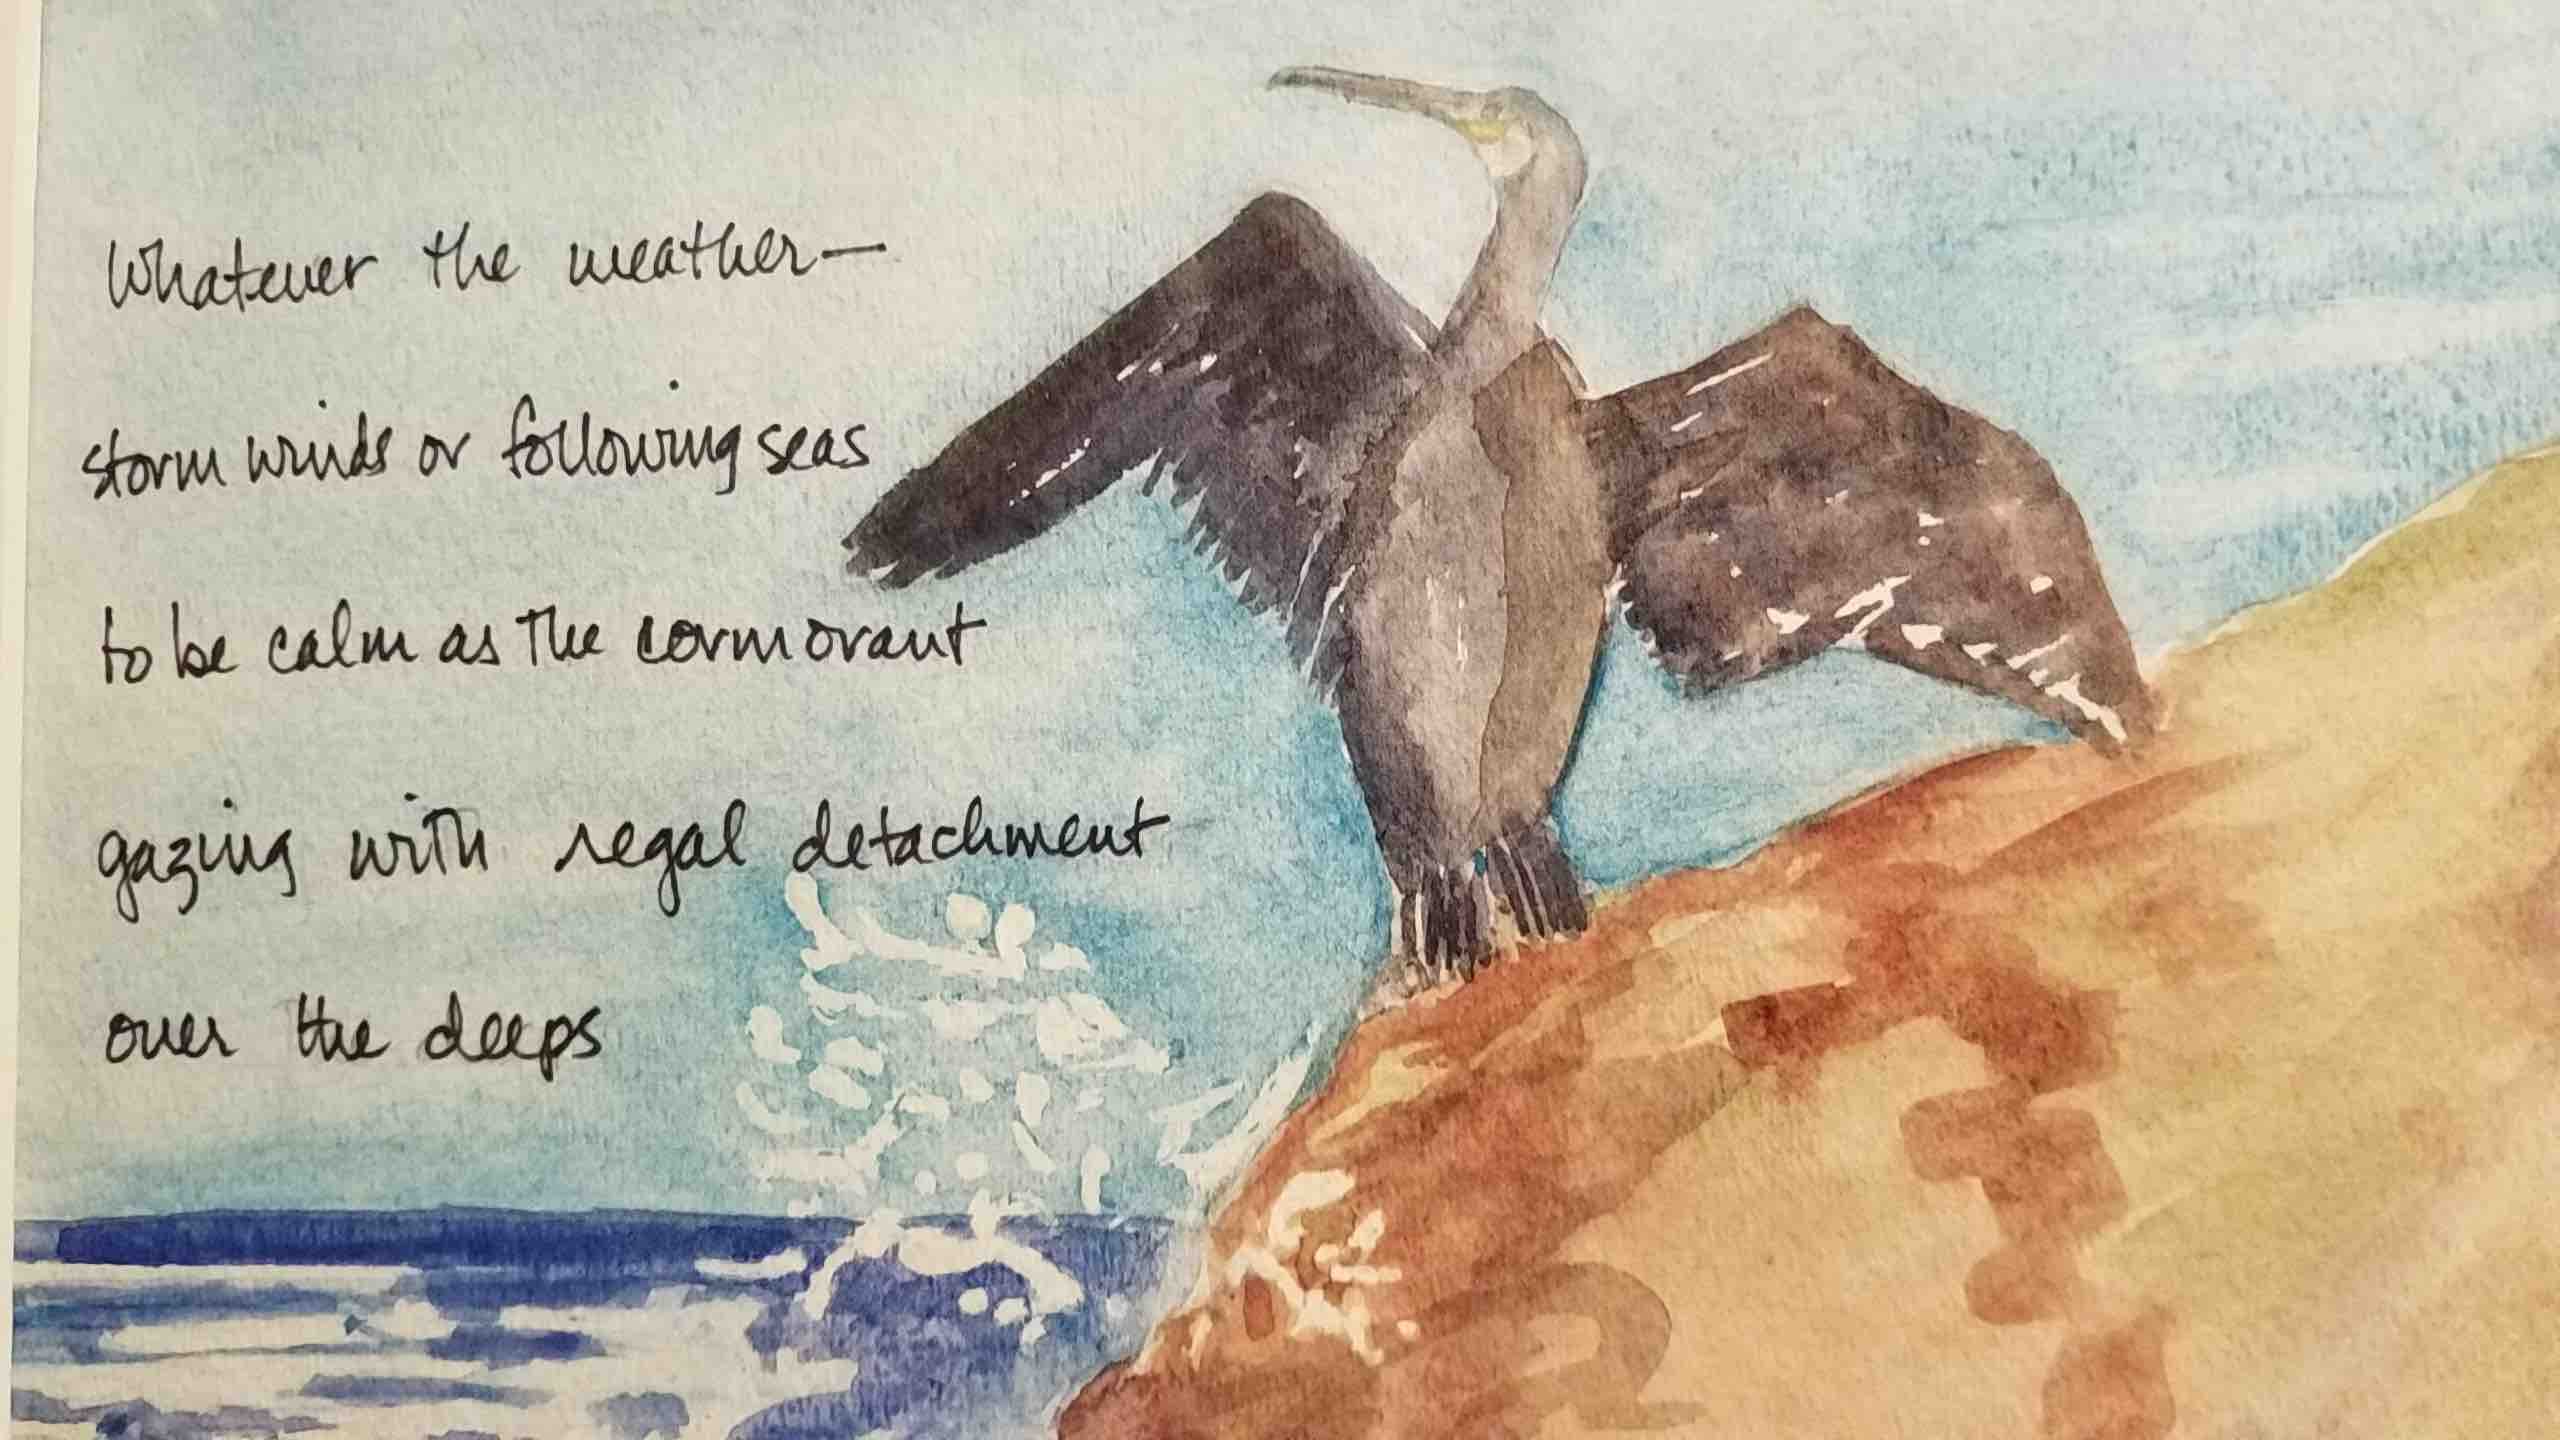 Whatever the weather—
storm winds or following seas
to be calm as the cormorant
gazing with regal detachment
over the deeps